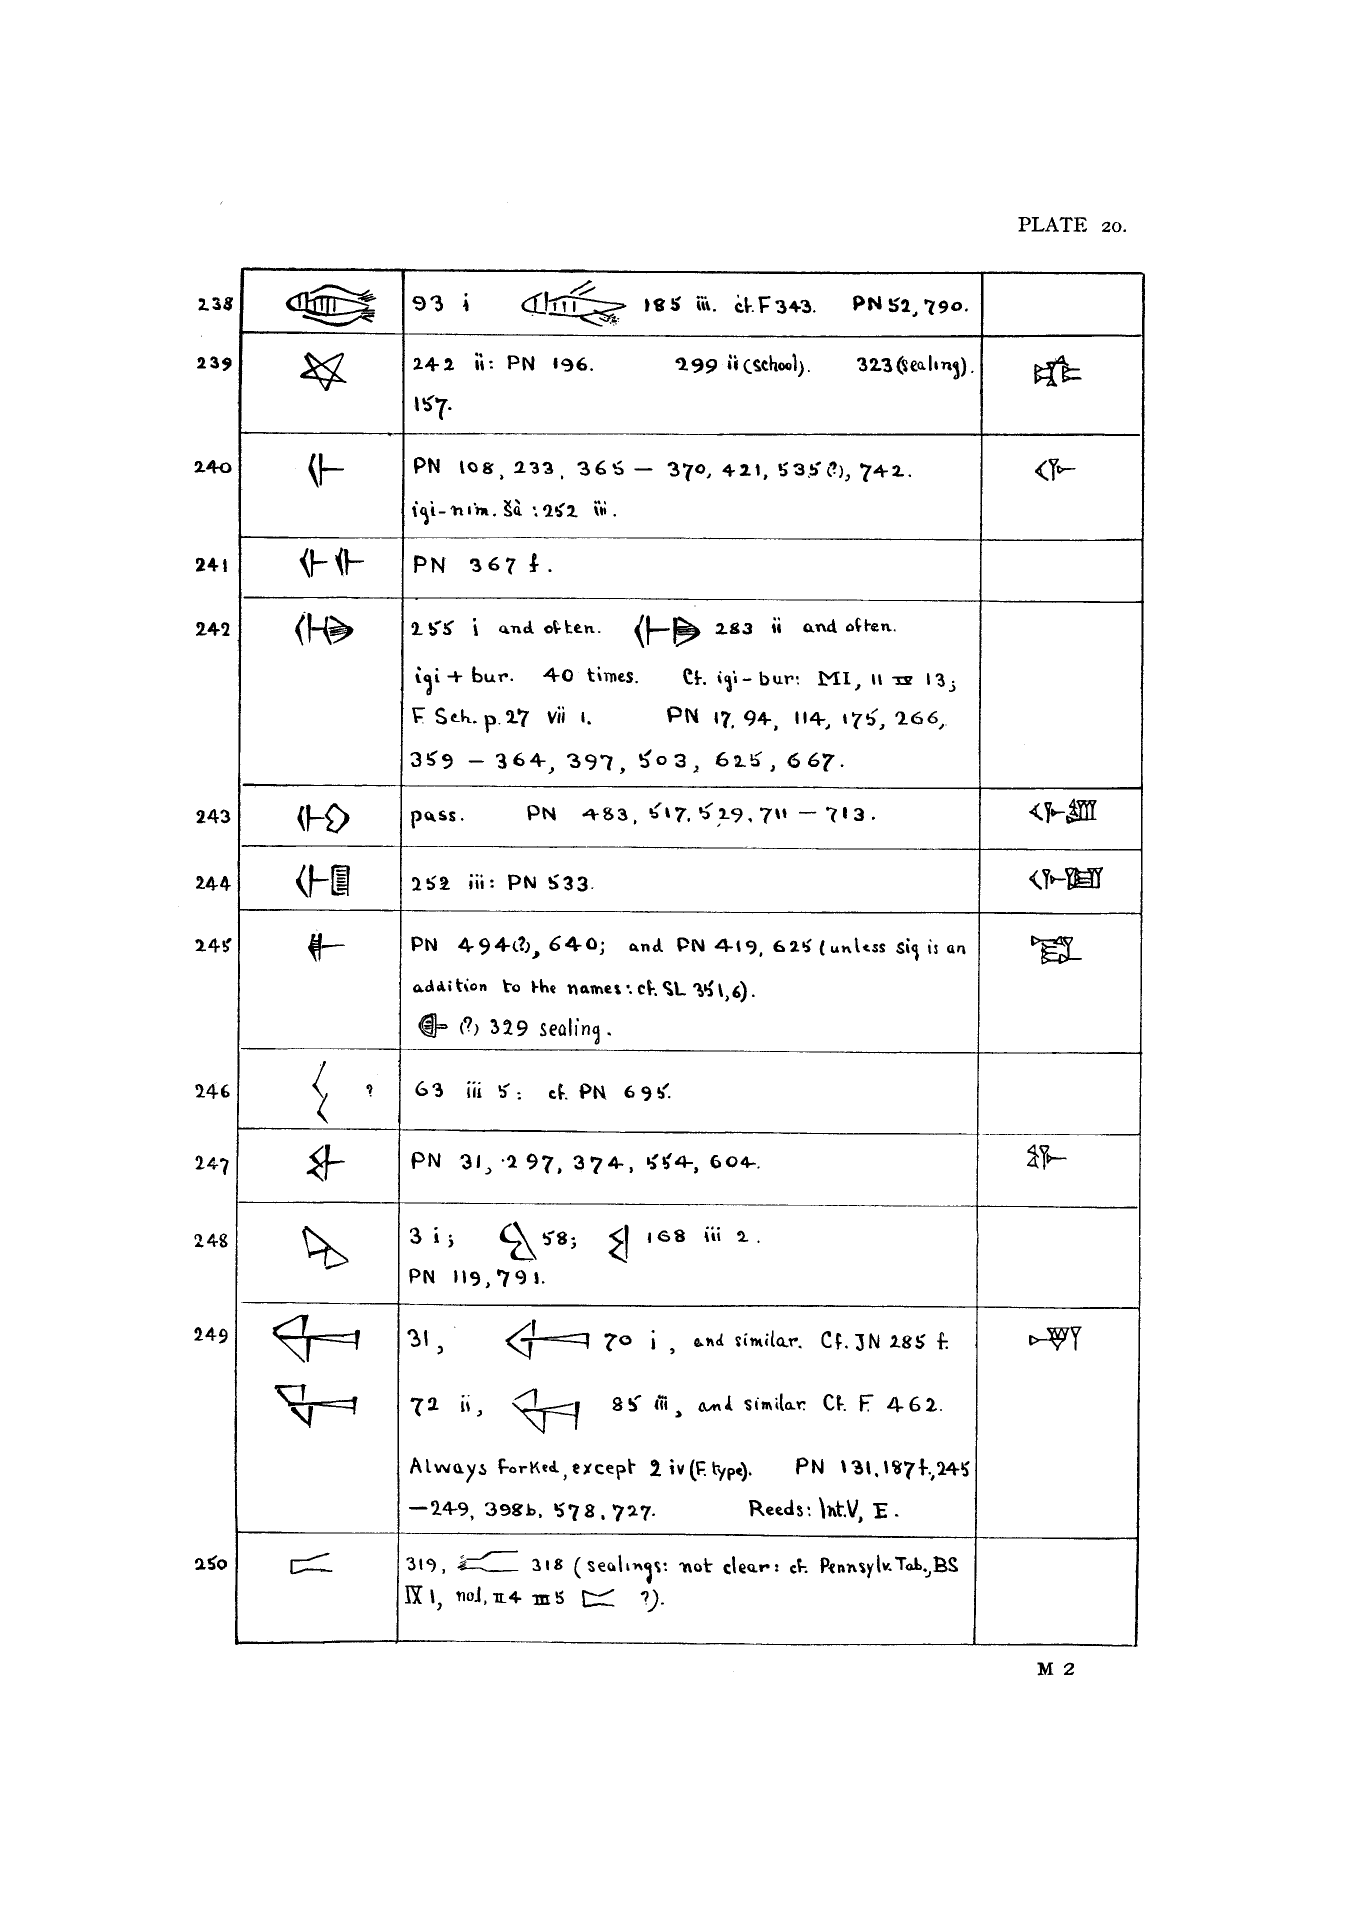 PLATE 20.
238 93 i 185 iii. cf. F 343. PN 52, 790.
239 242 ii: PN 196. 299 ii (school). 323 (sealing).
157.
240 PN 108, 233, 365 — 370, 421, 535 (?), 742.
igi-nim. šà : 252 iii.
241 PN 367 f.
242 255 i and often. 283 ii and often.
igi + bur. 40 times. Cf. igi-bur: MI, 11 IV 13;
F. Sch. p. 27 vii 1. PN 17, 94, 114, 175, 266,
359 — 364, 397, 503, 625, 667.
243 pass. PN 483, 517, 529, 711 — 713.
244 252 iii: PN 533.
245 PN 494(?), 640; and PN 419, 625 (unless sig is an
addition to the names: cf. SL 351,6).
(?) 329 sealing.
246 ? 63 iii 5: cf. PN 695.
247 PN 31, 297, 374, 554, 604.
248 3 i; 58; 168 iii 2.
PN 119, 791.
249 31, 70 i, and similar. Cf. JN 285 f.
72 ii, 85 iii, and similar. Cf. F. 462.
Always forked, except 2 iv (F. type). PN 131, 187 f., 245
— 249, 398b, 578, 727. Reeds: Int. V, E.
250 319, 318 (sealings: not clear: cf. Pennsylv. Tab., BS
IX 1, no1, II 4 III 5 ?).
M 2